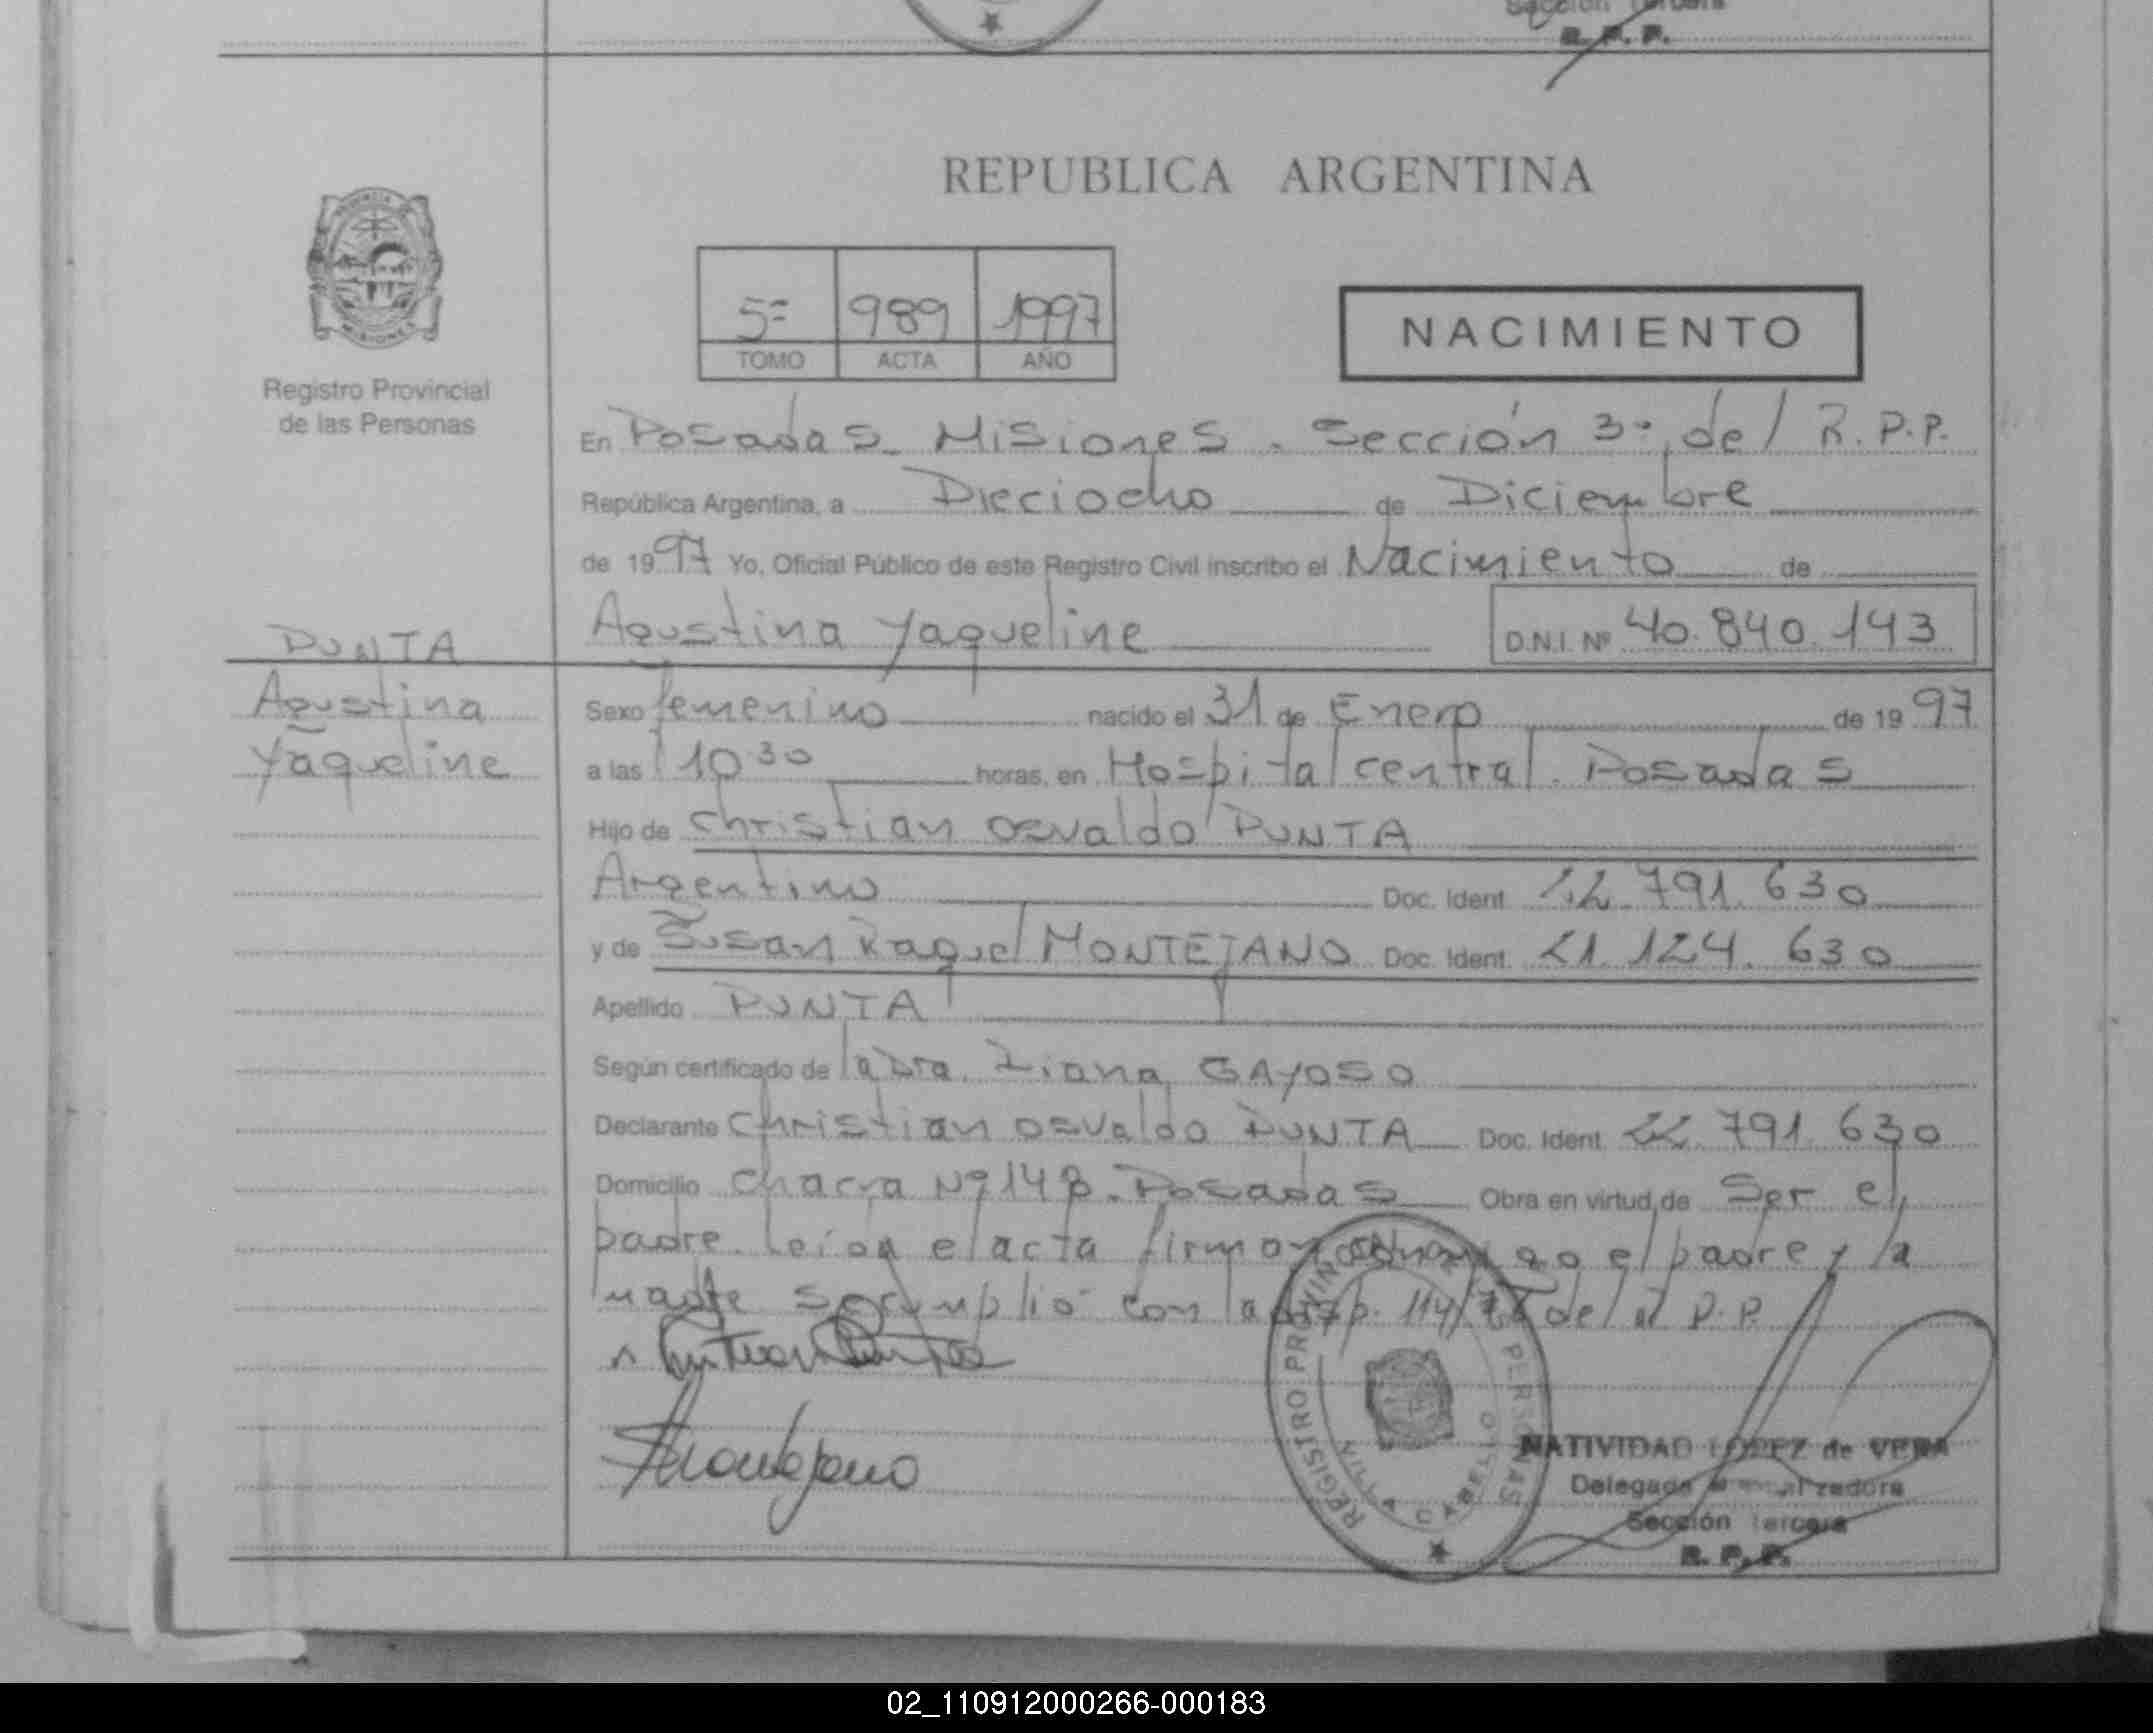 Sección Tercera
R. P. P.
REPUBLICA ARGENTINA
5º 989 1997
TOMO ACTA AÑO
NACIMIENTO
Registro Provincial
de las Personas
En Posadas Misiones. Sección 3º del R.P.P.
República Argentina, a Dieciocho de Diciembre
de 1997 Yo, Oficial Público de este Registro Civil inscribo el Nacimiento de
Agustina Yaqueline D.N.I. Nº 40.840.143
PUNTA
Agustina
Yaqueline
Sexo femenino nacido el 31 de Enero de 1997
a las 10 30 horas, en Hospital central. Posadas
Hijo de Christian Osvaldo PUNTA
Argentino Doc. Ident. 22.791.630
y de Susan Raquel MONTEJANO Doc. Ident. 21.124.630
Apellido PUNTA
Según certificado de la Dra. Liana GAYOSO
Declarante Christian Osvaldo PUNTA Doc. Ident. 22.791.630
Domicilio Chacra Nº 148. Posadas Obra en virtud de Ser el
padre. Leída el acta firman conmigo el padre y la
madre se cumplió con la disp. 114/ del R.P.P.
Montejano
REGISTRO PROVINCIAL DE LAS PERSONAS
VILLA CABELLO
NATIVIDAD LOPEZ de VERA
Delegada
Sección Tercera
R. P. P.
02_110912000266-000183